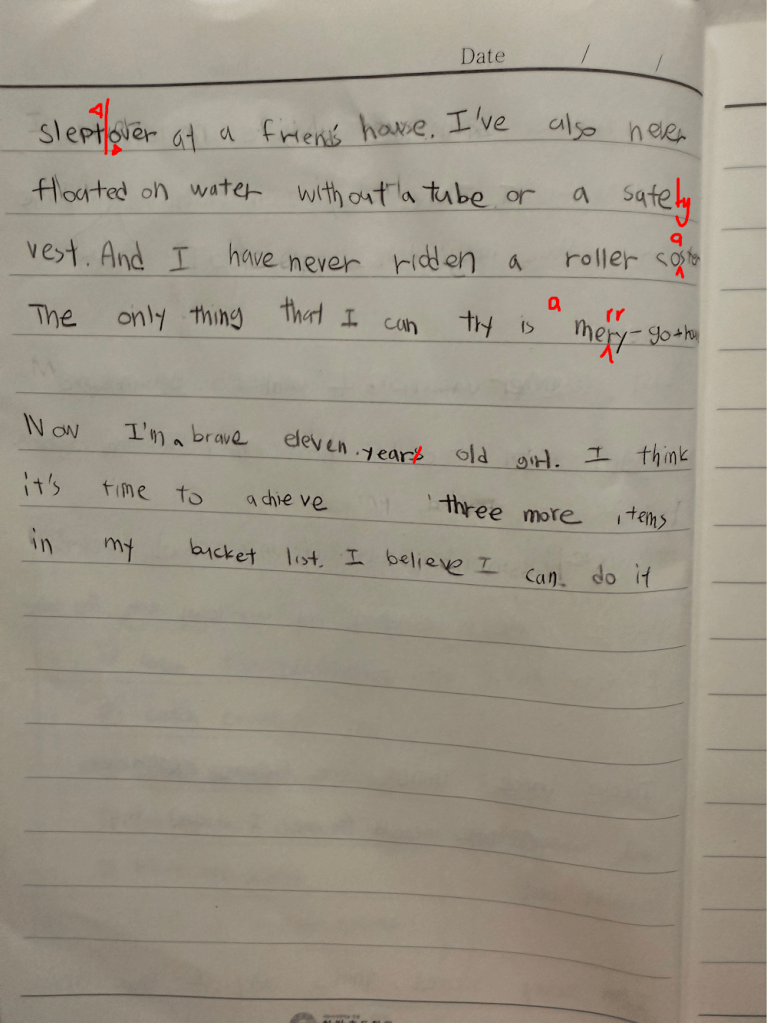 Date / /
slept over at a friend's house. I've also never
floated on water without a tube or a safety
vest. And I have never ridden a roller coaster
The only thing that I can try is a merry-go-
Now I'm a brave eleven year old girl. I think
it's time to achieve three more items
in my bucket list. I believe I can do it